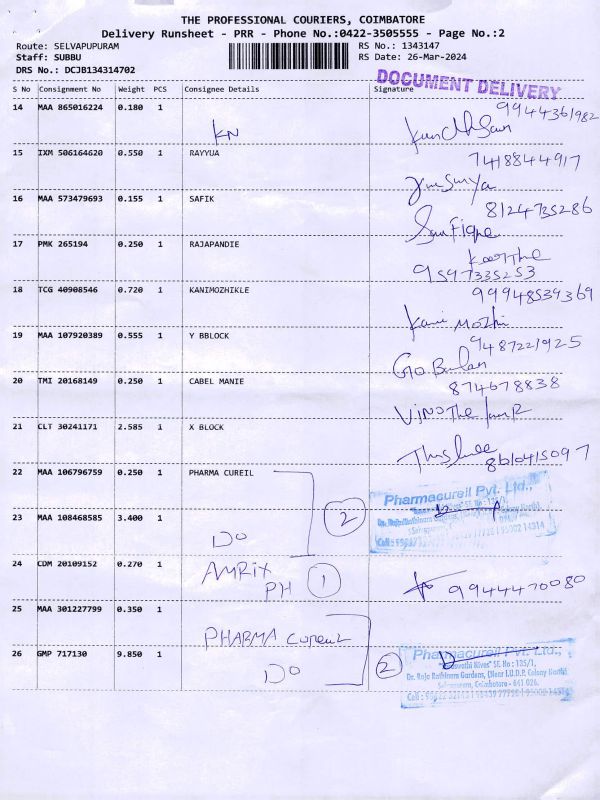 THE PROFESSIONAL COURIERS, COIMBATORE
Delivery Runsheet - PRR - Phone No.:0422-3505555 - Page No.:2
Route: SELVAPUPURAM
RS No.: 1343147
Staff: SUBBU
RS Date: 26-Mar-2024
DRS No.: DCJB134314702
DOCUMENT DELIVERY
S No Consignment No Weight PCS Consignee Details Signature
14 MAA 865016224 0.180 1 KN
15 IXM 506164620 0.550 1 RAYYUA 7418844917
16 MAA 573479693 0.155 1 SAFIK 8124735286
17 PMK 265194 0.250 1 RAJAPANDIE
9597335253
18 TCG 40908546 0.720 1 KANIMOZHIKLE 99948539369
Kani Mozhi
19 MAA 107920389 0.555 1 Y BBLOCK 9487221925
20 TMI 20168149 0.250 1 CABEL MANIE 874678838
21 CLT 30241171 2.585 1 X BLOCK
8610415097
22 MAA 106796759 0.250 1 PHARMA CUREIL
Pharmacureil Pvt. Ltd.,
23 MAA 108468585 3.400 1 DO 2
24 CDM 20109152 0.270 1 AMRIX
PH 1 9944470080
25 MAA 301227799 0.350 1
PHARMA Cureil
26 GMP 717130 9.850 1 DO 2
Pharmacureil Pvt. Ltd.,
"Bagavathi Nivas" SF. No : 135/1,
Dr. Raja Rathinam Gardens, (Near I.U.D.P. Colony North)
Selvapuram, Coimbatore - 641 026.